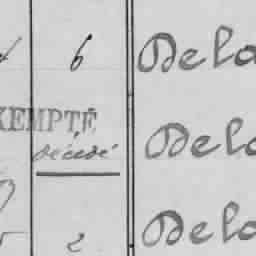 6 Dela
XEMPTÉ
décédé Dela
2 Dela